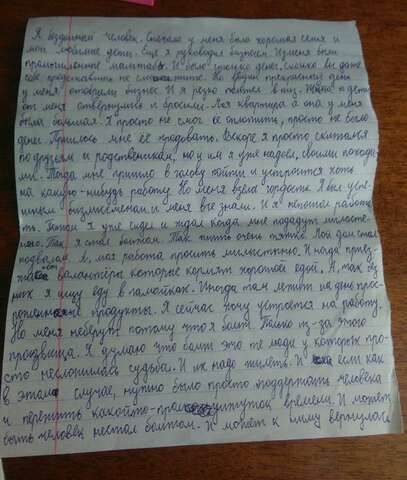 Я бездомный человек. Сначало у меня была хорошая семья и
мои любимые дети. Ещё я руководил бизнесом. У меня были
И было столько денег сколько вы даже
себе представить не сможите. Но в один прекрасный день
у меня отобрали бизнес. И я резко полетел в низ. Жена и дети
от меня отвернулись и бросили. Моя квартира а она у меня
была большая. Я просто не смог её оплатить, просто не было
денег. Пришлось мне её продовать. Вскоре я просто скитался
по друзьям и родственикам, но и им я уже надоел, своими похода-
ми. Тогда мне пришло в голову пойти и устроится хоть
на какую-нибудь работу. Но меня взяла гордость. Я был успе-
шным бизнесменом и меня все знали. И я нехотел работа-
ть. Потом я уже сидел и ждал когда мне подадут милосте-
ню. Так я стал бомжом. Так жить очень тяжко. Мой дом стал
подвалом, а моя работа просить милыстыню. Иногда приез-
жают валантёры которые кормят хорошой едой. А, так без
них я ищу еду в помойках. Иногда там лежит на дне прос-
роченые продукты. Я сейчас хочу устроется на работу.
Но меня неберут потому что я бомж. Только из-за этого
прозвища. Я думаю что бомж это те люди у которых про-
сто несложилась судьба. И их надо жилеть. И если как
в этом случае, нужно было просто поддержать человека
и пережить какойто промижуток времени. И может
быть человек нестал бомжом. И может к нему вернулась